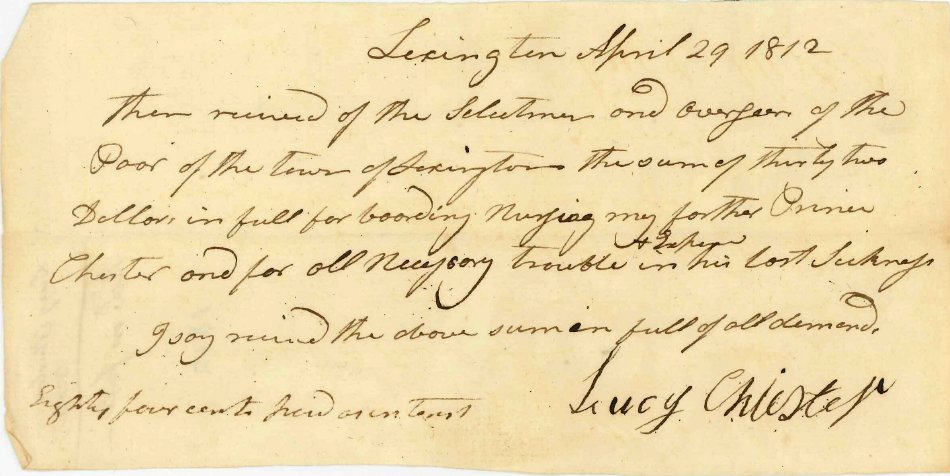 Lexington April 29 1812
then received of the Selectmen and overseers of the
Poor of the town of Lexington the sum of thirty two
Dollars in full for boarding Nursing my farther Prince
& Expence
Chester and for all Necessary trouble in his last Sickness
I say received the above sum in full of all demands
Eighty four cents paid as interest
Lucy Chiester